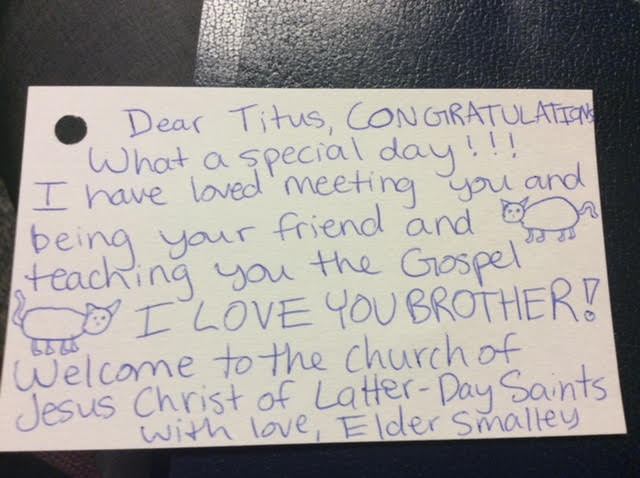 Dear Titus, CONGRATULATIONS
What a special day!!!
I have loved meeting you and
being your friend and
teaching you the Gospel
I LOVE YOU BROTHER!
Welcome to the church of
Jesus Christ of Latter-Day Saints
with love, Elder Smalley